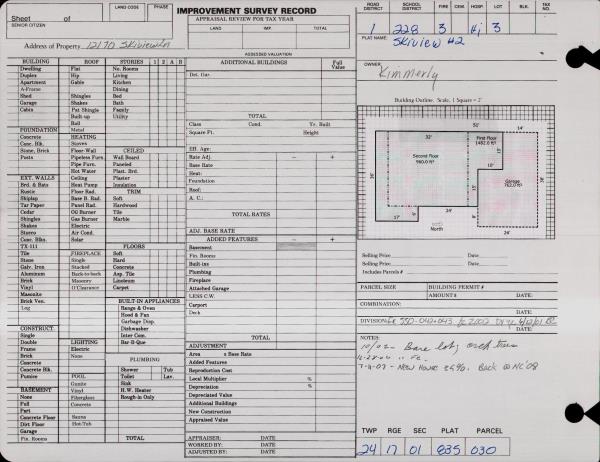 Sheet of
SENIOR CITIZEN
LAND CODE
PHASE
IMPROVEMENT SURVEY RECORD
APPRAISAL REVIEW FOR TAX YEAR
LAND IMP. TOTAL
Address of Property
ASSESSED VALUATION
ROAD DISTRICT
SCHOOL DISTRICT
FIRE
CEM.
HOSP.
LOT
BLK.
TAX NO.
1 228 3 Hj 3
PLAT NAME:
SKIVIEW #2
OWNER
Kimmerly
BUILDING ROOF STORIES 1 2 A B
Dwelling Flat No. Rooms
Duplex Hip Living
Apartment Gable Kitchen
A-Frame Dining
Shed Shingles Bed
Garage Shakes Bath
Cabin Pat Shingle Family
Built up Utility
Roll
FOUNDATION Metal
Concrete HEATING
Conc. Blk. Stoves CEILED
Stone, Brick Floor-Wall Wall Board
Posts Pipeless Furn. Paneled
Pipe Furn. Plast. Brd.
Hot Water Ceiling
EXT. WALLS Plaster
Brd. & Bats Heat Pump Insulation
Rustic Floor Rad. TRIM
Shiplap Base B. Rad. Soft
Tar Paper Panel Rad. Hardwood
Cedar Oil Burner Tile
Shingles Gas Burner Marble
Shakes Electric
Stucco Air Cond.
Conc. Blks. Solar FLOORS
TX-111 Soft
Tile FIREPLACE Hard
Stone Single Concrete
Galv. Iron Stacked Asp. Tile
Aluminum Back-to-back Linoleum
Brick Masonry Carpet
Vinyl O'Clearance
Masonite
Brick Ven. BUILT-IN APPLIANCES
Log Range & Oven
Hood & Fan
Garbage Disp.
CONSTRUCT. Dishwasher
Single Inter Com.
Double LIGHTING Bar-B-Que
Frame Electric
Brick None PLUMBING
Concrete Shower Tub
Concrete Blk. Toilet Lav.
Pumice POOL Sink
Gunite H.W. Heater
BASEMENT Vinyl Rough-in Only
None Fiberglass
Full Concrete
Part
Concrete Floor Sauna
Dirt Floor Hot-Tub
Garage
Fin. Rooms TOTAL
ADDITIONAL BUILDINGS Full Value
Det. Gar.
TOTAL
Class Cond. Yr. Built
Square Ft. Height
Eff. Age:
Rate Adj. − +
Base Rate
Heat:
Foundation
Roof:
A. C.:
TOTAL RATES
ADJ. BASE RATE
ADDED FEATURES − +
Basement
Fin. Rooms
Built-ins
Plumbing
Fireplace
Attached Garage
LESS C.W.
Carport
Deck
TOTAL
ADJUSTMENT
Area x Base Rate
Added Features
Reproduction Cost
Local Multiplier %
Depreciation %
Depreciated Value
Additional Buildings
New Construction
Appraised Value
APPRAISER: DATE
WORKED BY: DATE
ADJUSTED BY: DATE
Building Outline. Scale, 1 Square = 2'
52'
14'
32'
First Floor
1482.0 ft²
Second Floor
960.0 ft²
Garage
762.0 ft²
17'
24'
24'
North
Selling Price DATE:
Selling Price DATE:
Includes Parcels #
PARCEL SIZE BUILDING PERMIT #
AMOUNT $ DATE:
COMBINATION: DATE:
DIVISION: DATE:
NOTES
10/02 - Bare lot,
7-11-07 - New House
TWP RGE SEC PLAT PARCEL
24 17 01 835 030